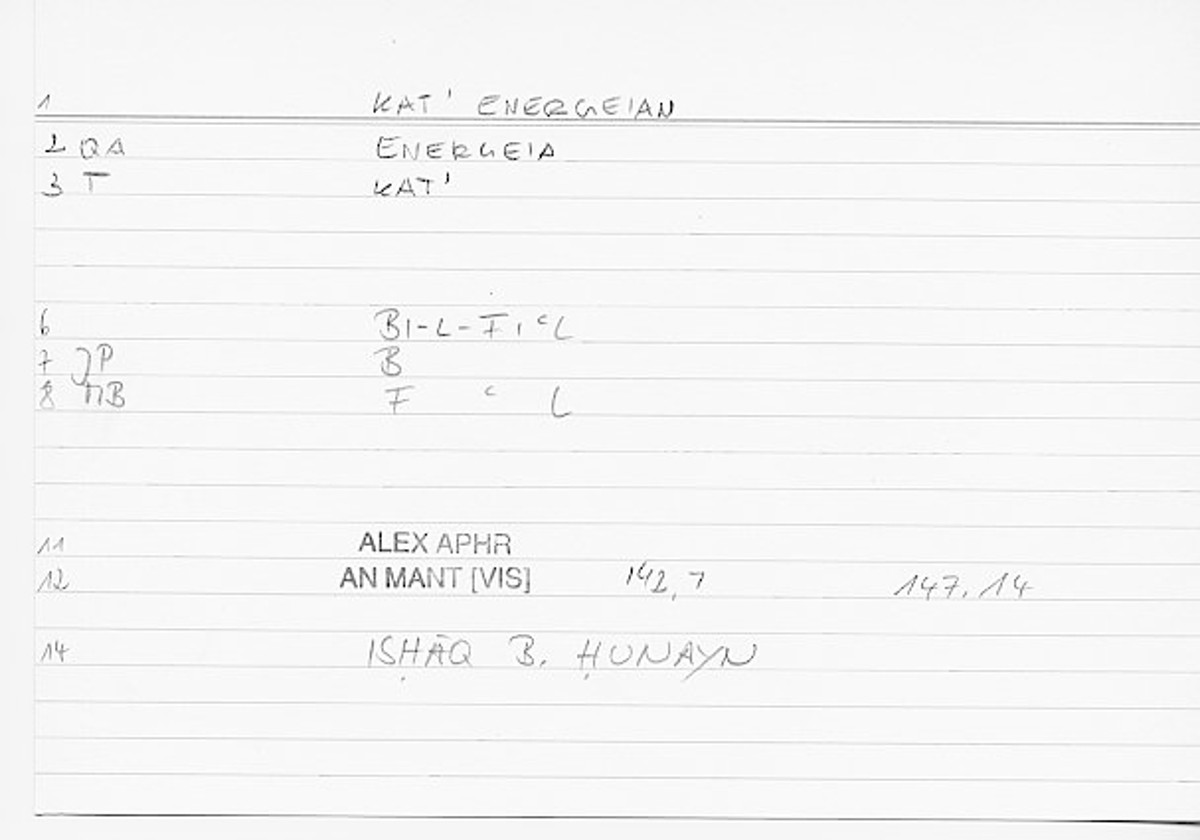 1 KAT' ENERGEIAN
2 QA ENERGEIA
3 T KAT'
6 BI-L-FIᶜL
7 JP B
8 NB F ᶜ L
11 ALEX APHR
12 AN MANT [VIS] 142,7 147.14
14 ISḤĀQ B. ḤUNAYN